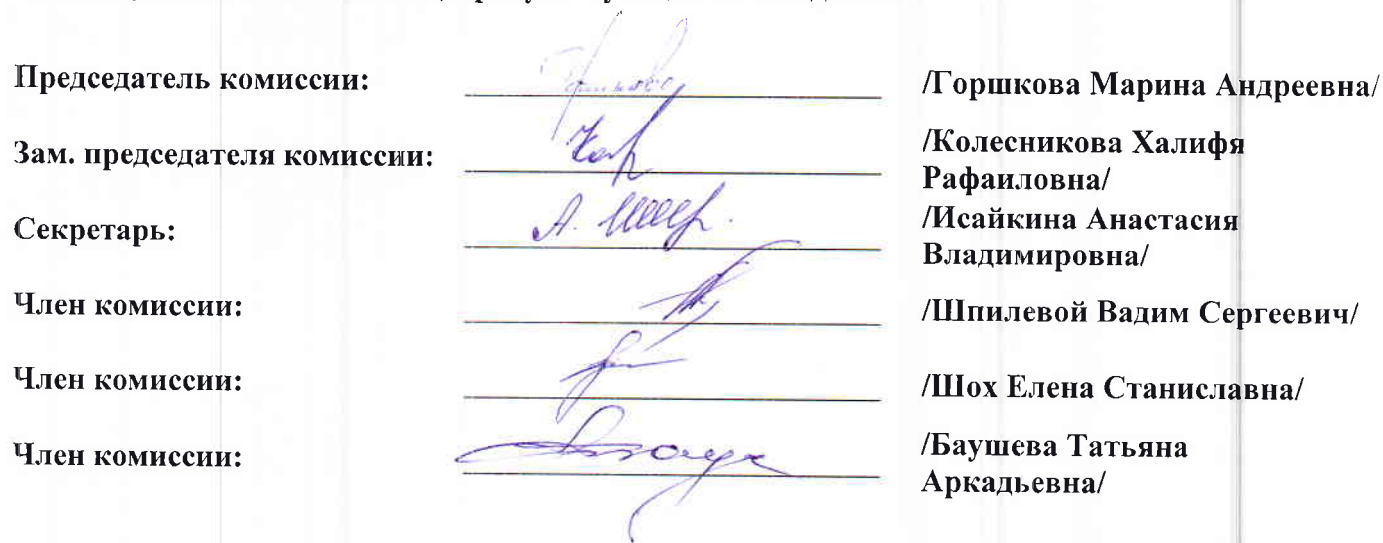 Председатель комиссии: /Горшкова Марина Андреевна/
Зам. председателя комиссии: /Колесникова Халифя
Рафаиловна/
Секретарь: /Исайкина Анастасия
Владимировна/
Член комиссии: /Шпилевой Вадим Сергеевич/
Член комиссии: /Шох Елена Станиславна/
Член комиссии: /Баушева Татьяна
Аркадьевна/